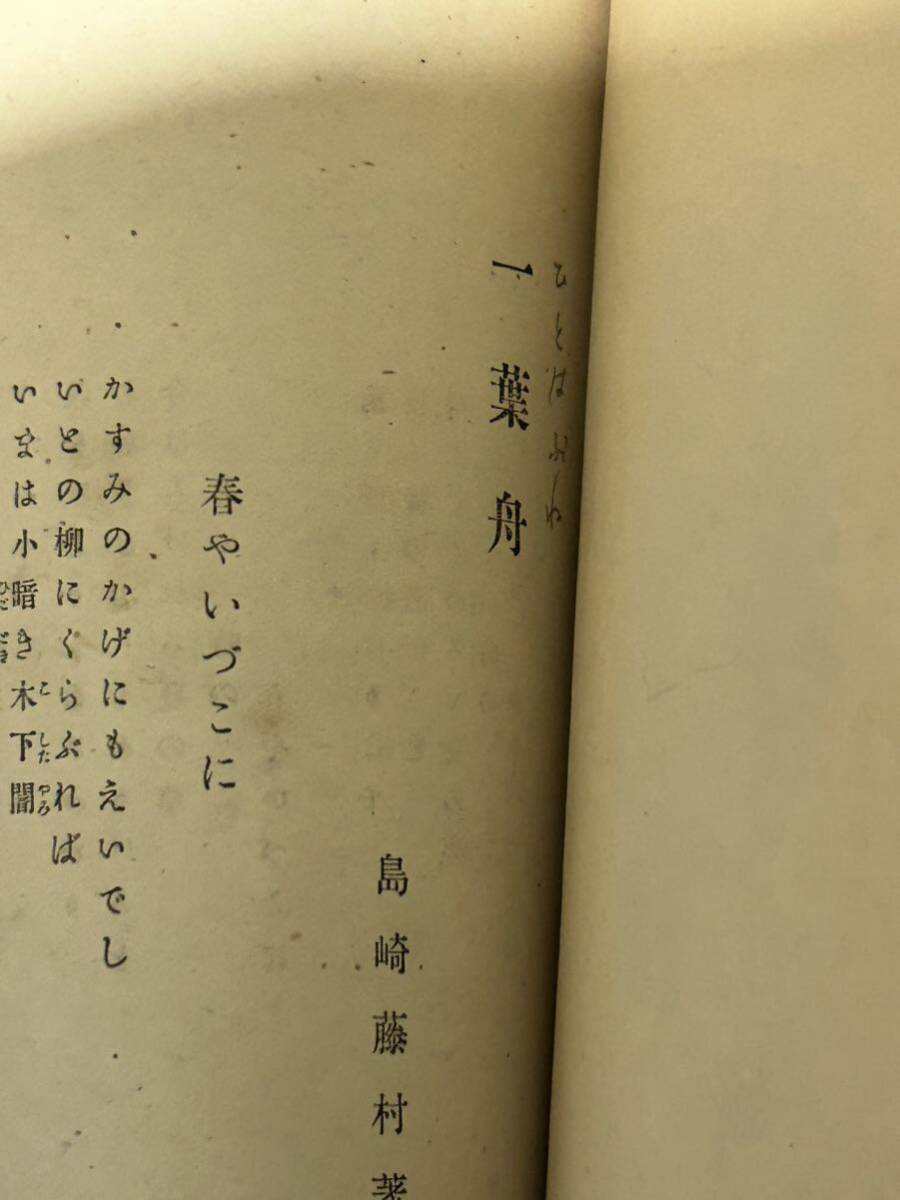 ひとはふね
一葉舟
島崎藤村著
春やいづこに
かすみのかげにもえいでし
いとの柳にくらぶれば
いまは小暗き木下闇
こしたやみ